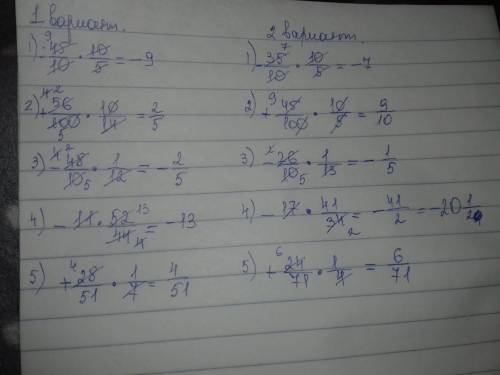 1 вариант.
1) -45/10 · 10/5 = -9
2) +56/100 · 10/14 = 2/5
3) -48/10 · 1/12 = -2/5
4) -11 · 52/44 = -13
5) +28/51 · 1/7 = 4/51
2 вариант.
1) -35/10 · 10/5 = -7
2) +45/100 · 10/5 = 9/10
3) -26/10 · 1/13 = -1/5
4) -17 · 41/34 = -41/2 = -20 1/2
5) +24/71 · 1/4 = 6/71